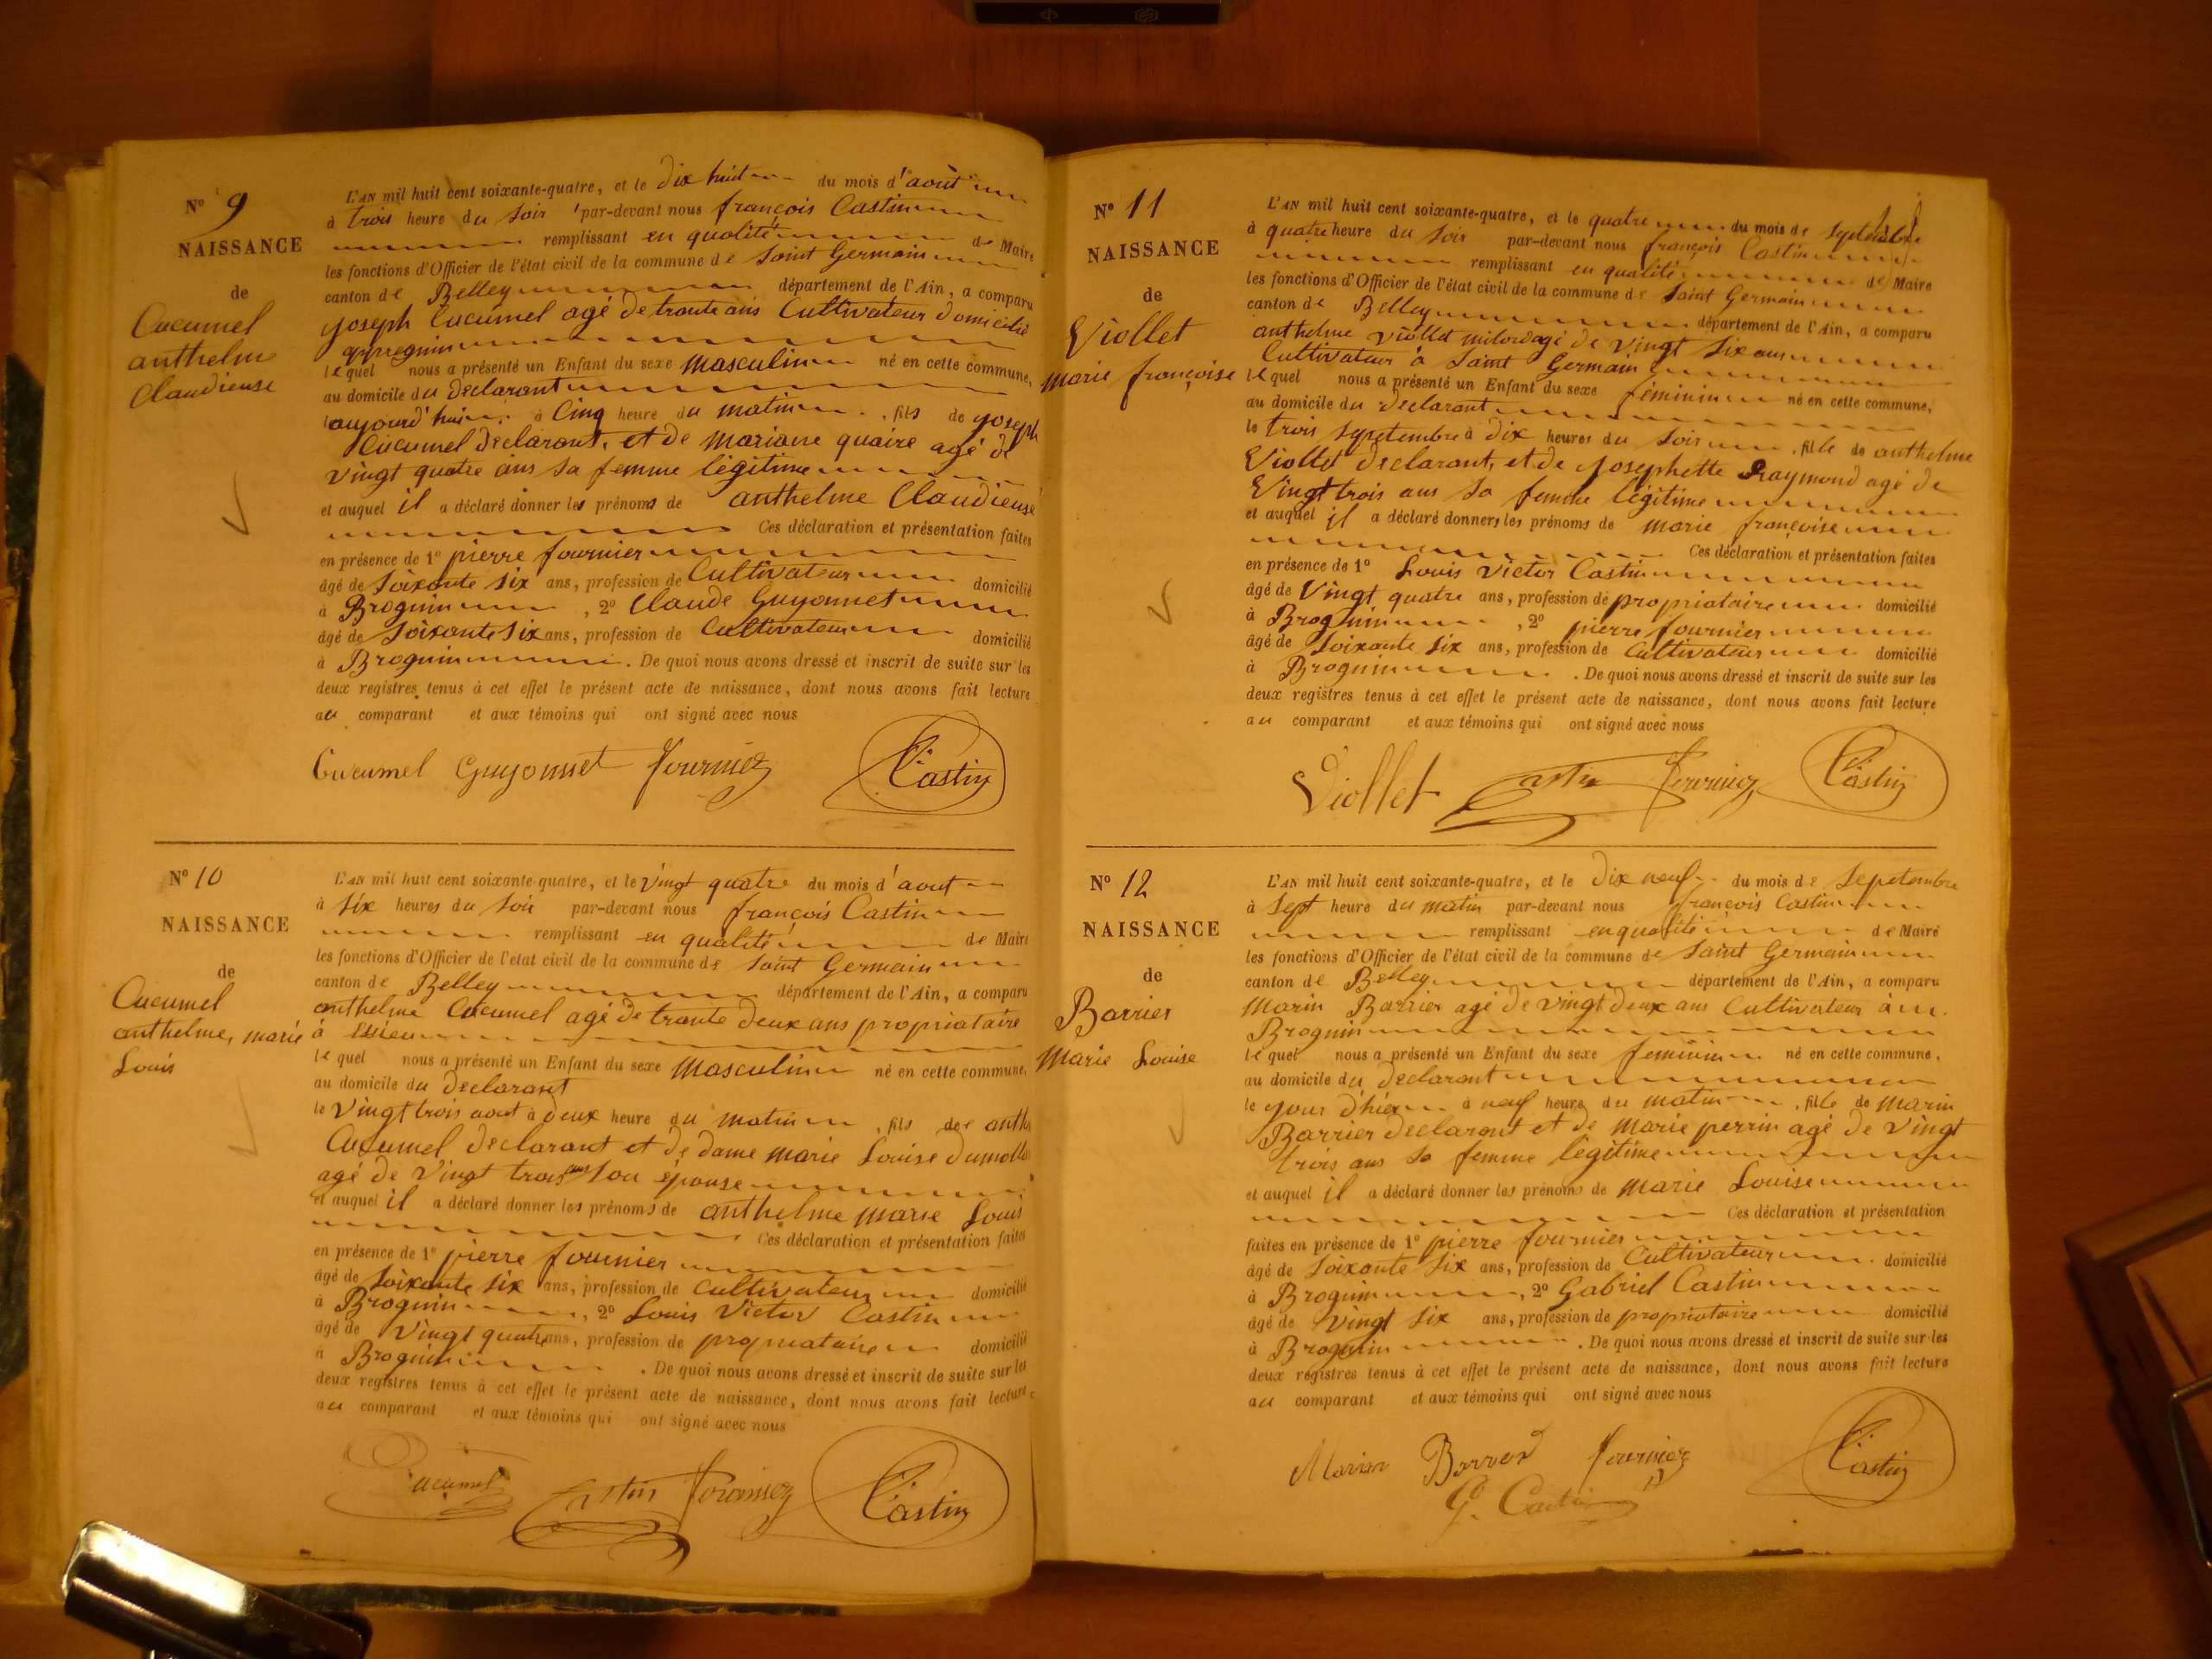 N° 9
NAISSANCE
de
Cucumel
anthelme
Claudieuse
L'AN mil huit cent soixante-quatre, et le dix huit du mois d'août
à trois heure du soir par-devant nous françois Castin
remplissant en qualité de Maire
les fonctions d'Officier de l'état civil de la commune de Saint Germain
canton de Belley département de l'Ain, a comparu
joseph Cucumel agé de trante ans Cultivateur domicilié
appregnin
lequel nous a présenté un Enfant du sexe masculin né en cette commune,
au domicile du declarant
aujourd'hui à Cinq heure du matin, fils de joseph
Cucumel declarant, et de mariane quaire agé de
vingt quatre ans sa femme légitime
et auquel il a déclaré donner les prénoms de anthelme Claudieuse
Ces déclaration et présentation faites
en présence de 1° pierre fournier
âgé de soixante six ans, profession de Cultivateur domicilié
à Brognin, 2° Claude Guyonnet
âgé de soixante six ans, profession de Cultivateur domicilié
à Brognin. De quoi nous avons dressé et inscrit de suite sur les
deux registres tenus à cet effet le présent acte de naissance, dont nous avons fait lecture
au comparant et aux témoins qui ont signé avec nous
Cucumel Guyonnet Fournier Castin
N° 10
NAISSANCE
de
Cucumel
anthelme, marie
Louis
L'AN mil huit cent soixante-quatre, et le vingt quatre du mois d'aout
à six heures du soir par-devant nous françois Castin
remplissant en qualité de Maire
les fonctions d'Officier de l'état civil de la commune de Saint Germain
canton de Belley département de l'Ain, a comparu
anthelme Cucumel agé de trante deux ans propriataire
à essieu
lequel nous a présenté un Enfant du sexe masculin né en cette commune,
au domicile du declarant
le vingt trois aout à deux heure du matin, fils de anth
Cucumel declarant et de dame marie Louise dumolla
agé de vingt trois ans son épouse
et auquel il a déclaré donner les prénoms de anthelme marie Louis
Ces déclaration et présentation faites
en présence de 1° pierre fournier
âgé de soixante six ans, profession de cultivateur domicilié
à Brognin, 2° Louis Victor Castin
âgé de vingt quatre ans, profession de propriataire domicilié
à Brognin. De quoi nous avons dressé et inscrit de suite sur les
deux registres tenus à cet effet le présent acte de naissance, dont nous avons fait lecture
au comparant et aux témoins qui ont signé avec nous
Cucumel Castin Fournier Castin
N° 11
NAISSANCE
de
Viollet
marie françoise
L'AN mil huit cent soixante-quatre, et le quatre du mois de septembre
à quatre heure du soir par-devant nous françois Castin
remplissant en qualité de Maire
les fonctions d'Officier de l'état civil de la commune de Saint Germain
canton de Belley département de l'Ain, a comparu
anthelme viollet milord agé de vingt six ans
Cultivateur à Saint Germain
lequel nous a présenté un Enfant du sexe féminin né en cette commune,
au domicile du declarant
le trois sepetembre à dix heures du soir, fille de anthelme
Viollet declarant, et de josephette Raymond agé de
Vingt trois ans sa femme légitime
et auquel il a déclaré donner les prénoms de marie françoise
Ces déclaration et présentation faites
en présence de 1° Louis victor Castin
âgé de Vingt quatre ans, profession de propriataire domicilié
à Brognin, 2° pierre fournier
âgé de soixante six ans, profession de Cultivateur domicilié
à Brognin. De quoi nous avons dressé et inscrit de suite sur les
deux registres tenus à cet effet le présent acte de naissance, dont nous avons fait lecture
au comparant et aux témoins qui ont signé avec nous
Viollet Castin Fournier Castin
N° 12
NAISSANCE
de
Barrier
Marie Louise
L'AN mil huit cent soixante-quatre, et le dix neuf du mois de sepetembre
à sept heure du matin par-devant nous françois Castin
remplissant en qualité de Maire
les fonctions d'Officier de l'état civil de la commune de Saint Germain
canton de Belley département de l'Ain, a comparu
Marin Barrier agé de vingt deux ans Cultivateur à
Brognin
lequel nous a présenté un Enfant du sexe féminin né en cette commune,
au domicile du declarant
le jour d'hier à neuf heure du matin, fille de marin
Barrier declarant et de marie perrin agé de vingt
trois ans sa femme légitime
et auquel il a déclaré donner les prénoms de marie Louise
Ces déclaration et présentation
faites en présence de 1° pierre fournier
âgé de soixante six ans, profession de Cultivateur domicilié
à Brognin, 2° Gabriel Castin
âgé de vingt six ans, profession de propriotaire domicilié
à Brognin. De quoi nous avons dressé et inscrit de suite sur les
deux régistres tenus à cet effet le présent acte de naissance, dont nous avons fait lecture
au comparant et aux témoins qui ont signé avec nous
Marin Barrer Fournier Castin
G. Castin